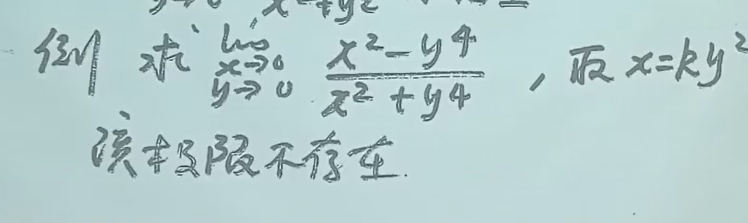 例 求 lim x→0 y→0 (x²-y⁴)/(x²+y⁴)，取 x=ky²
该极限不存在.